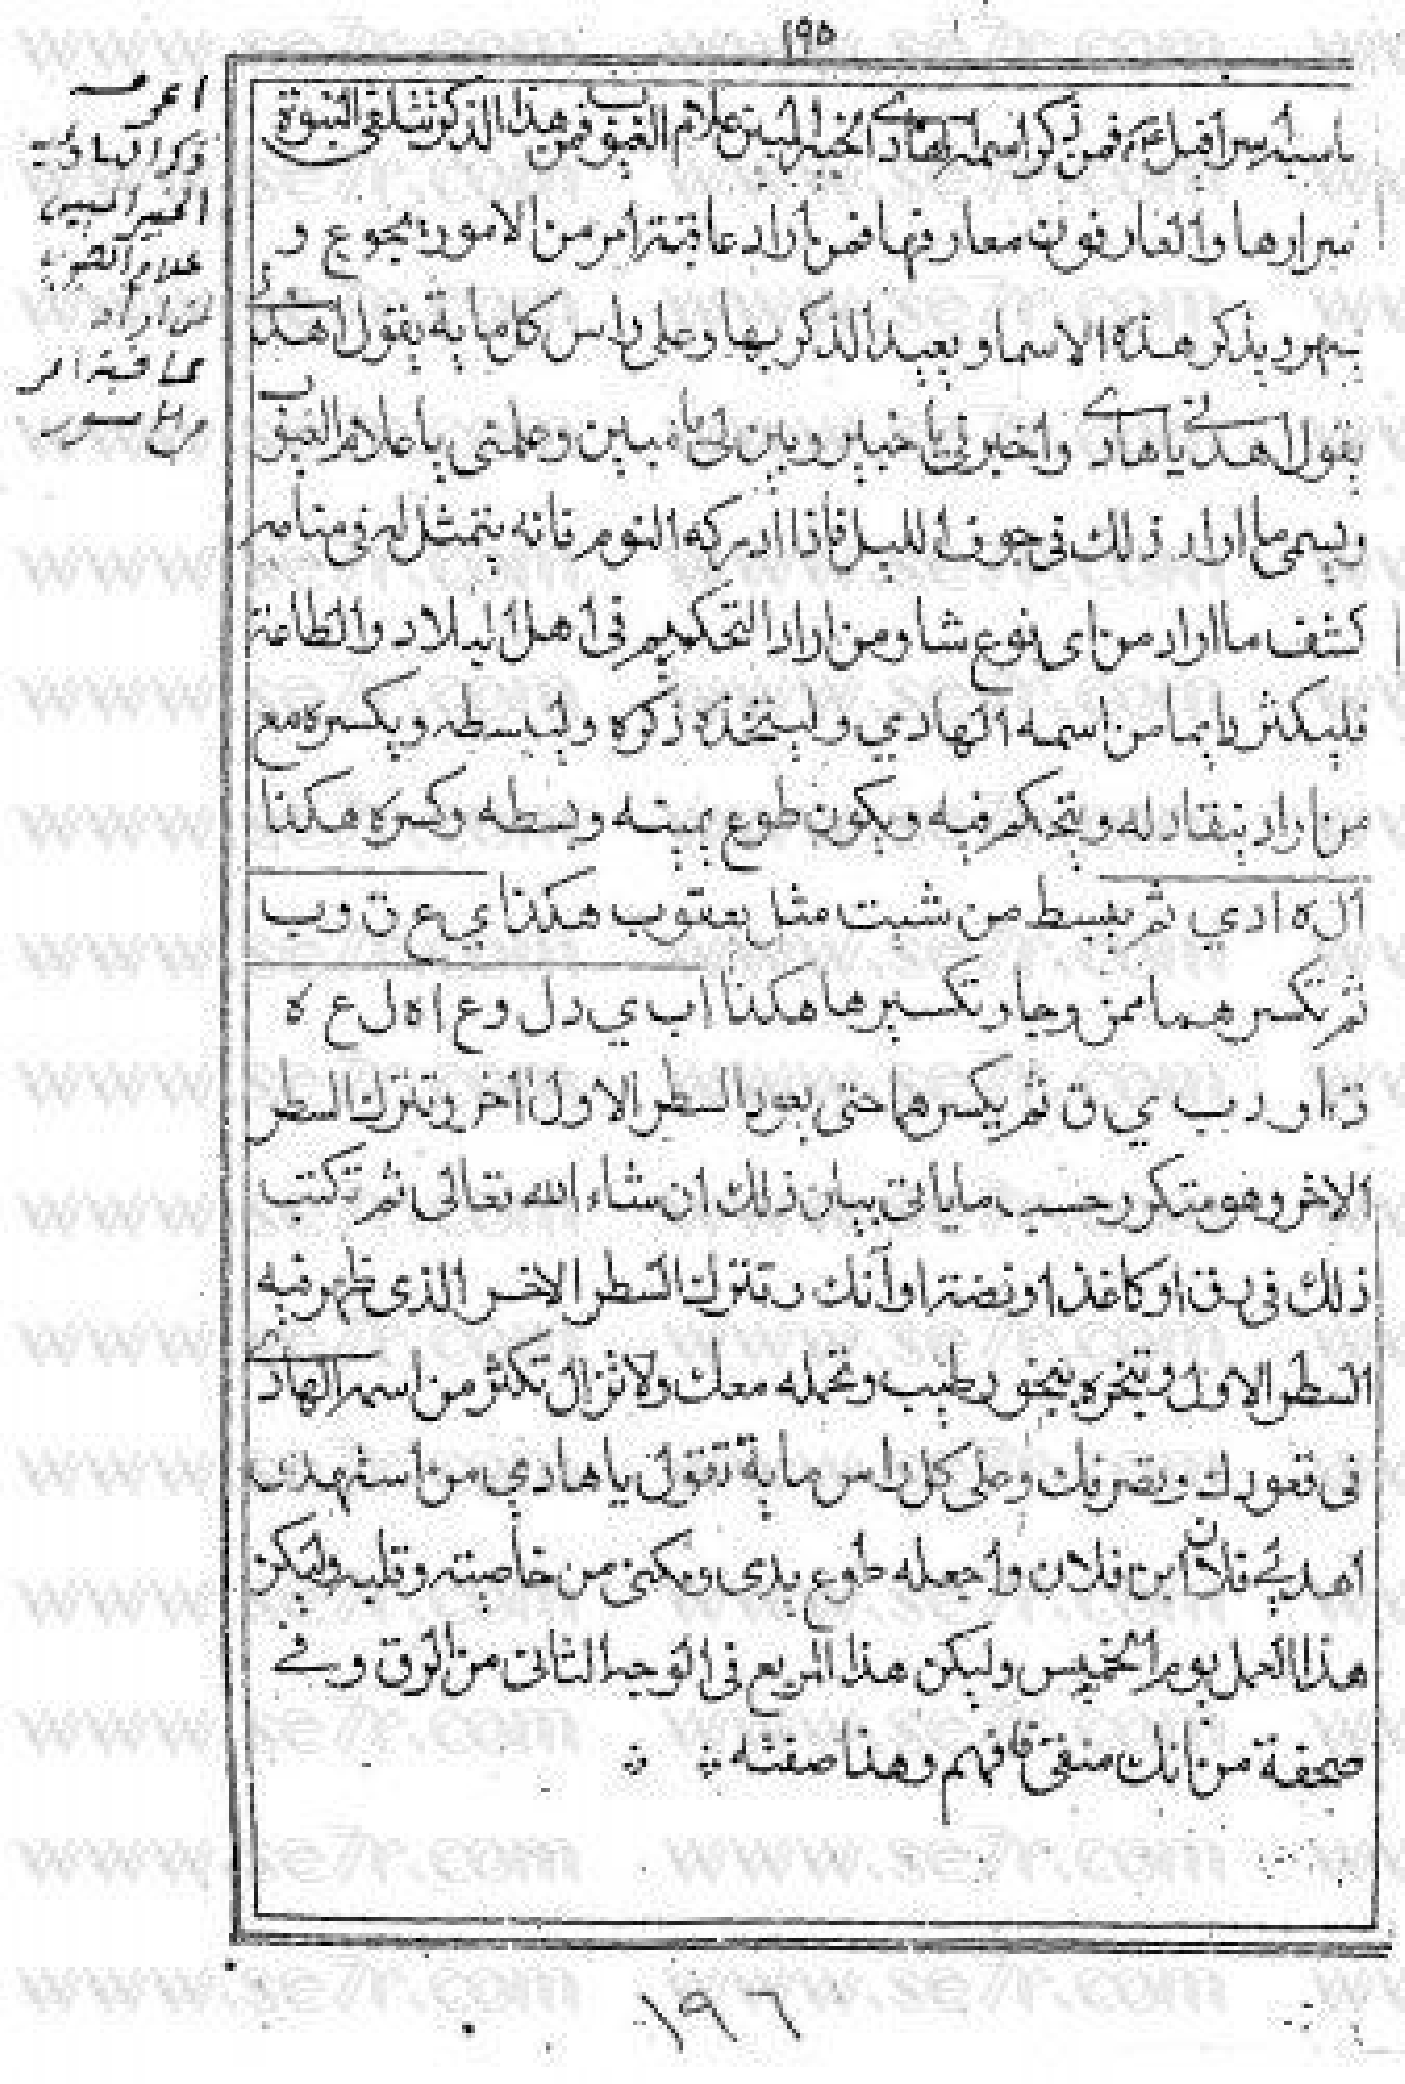 ١٩٥
فمن ذكر اسمه الهادي الخبير المبين علام الغيوب فمن هذا الذكر تتلقى النبوة
سرارها والعارفون معارفها فمن اراد عاقبة امر من الامور يجوع و
يسهر ويذكر هذه الاسما و بعبد الذكر بها وعلى راس كل ماية يقول اهدني
يقول اهدني يا هادي واخبرني يا خبير وبين لي يا مبين وعلمني يا علام الغيوب
ويسمي ما اراد ذلك في جوف الليل فاذا ادركه النوم فانه يتمثل له في منامه
كشف ما اراد من اي نوع شا ومن اراد التحكيم في اهل البلاد والطاعة
فليكثر دايما من اسمه الهادي وليتخذه ذكره وليبسطه ويكسره مع
من اراد ينقاد له ويتحكم فيه ويكون طوع يمينه وبسطه وكسره هكذا
ال ه ا د ي ثم يبسط من شيت مثل يعقوب هكذا ي ع ق و ب
ثم تكسرهما ممزوجا وتكسيرها هكذا ا ب ي د ل و ع ا ه ل ع ه
ق ا و د ب ي ق ثم يكسرهما حتى يعود السطر الاول اخر وتترك السطر
الاخر وهو متكرر حسب ما ياتي بيان ذلك ان شاء الله تعالى ثم تكتب
ذلك في رق او كاغذ او فضة او آنك وتترك السطر الاخر الذي ظهر فيه
السطر الاول وتبخره ببخور طيب وتحمله معك ولا تزال تكثر من اسمه الهادي
في قعودك وتصرفك وعلى كل راس ماية تقول يا هادي من استهدى
اهد لي فلان ابن فلان واجعله طوع يدي ومكني من خاصيته وقلبه وليكن
هذا العمل يوم الخميس وليكن هذا المربع في الوجه الثاني من الرق وفي
صحفة من آنك منقى فافهم وهذا صفته
اعرف
ذكر الهادي
الخبير المبين
علام الغيوب
لمن اراد
عاقبة امر
من الامور
١٩٦
www.se7r.com